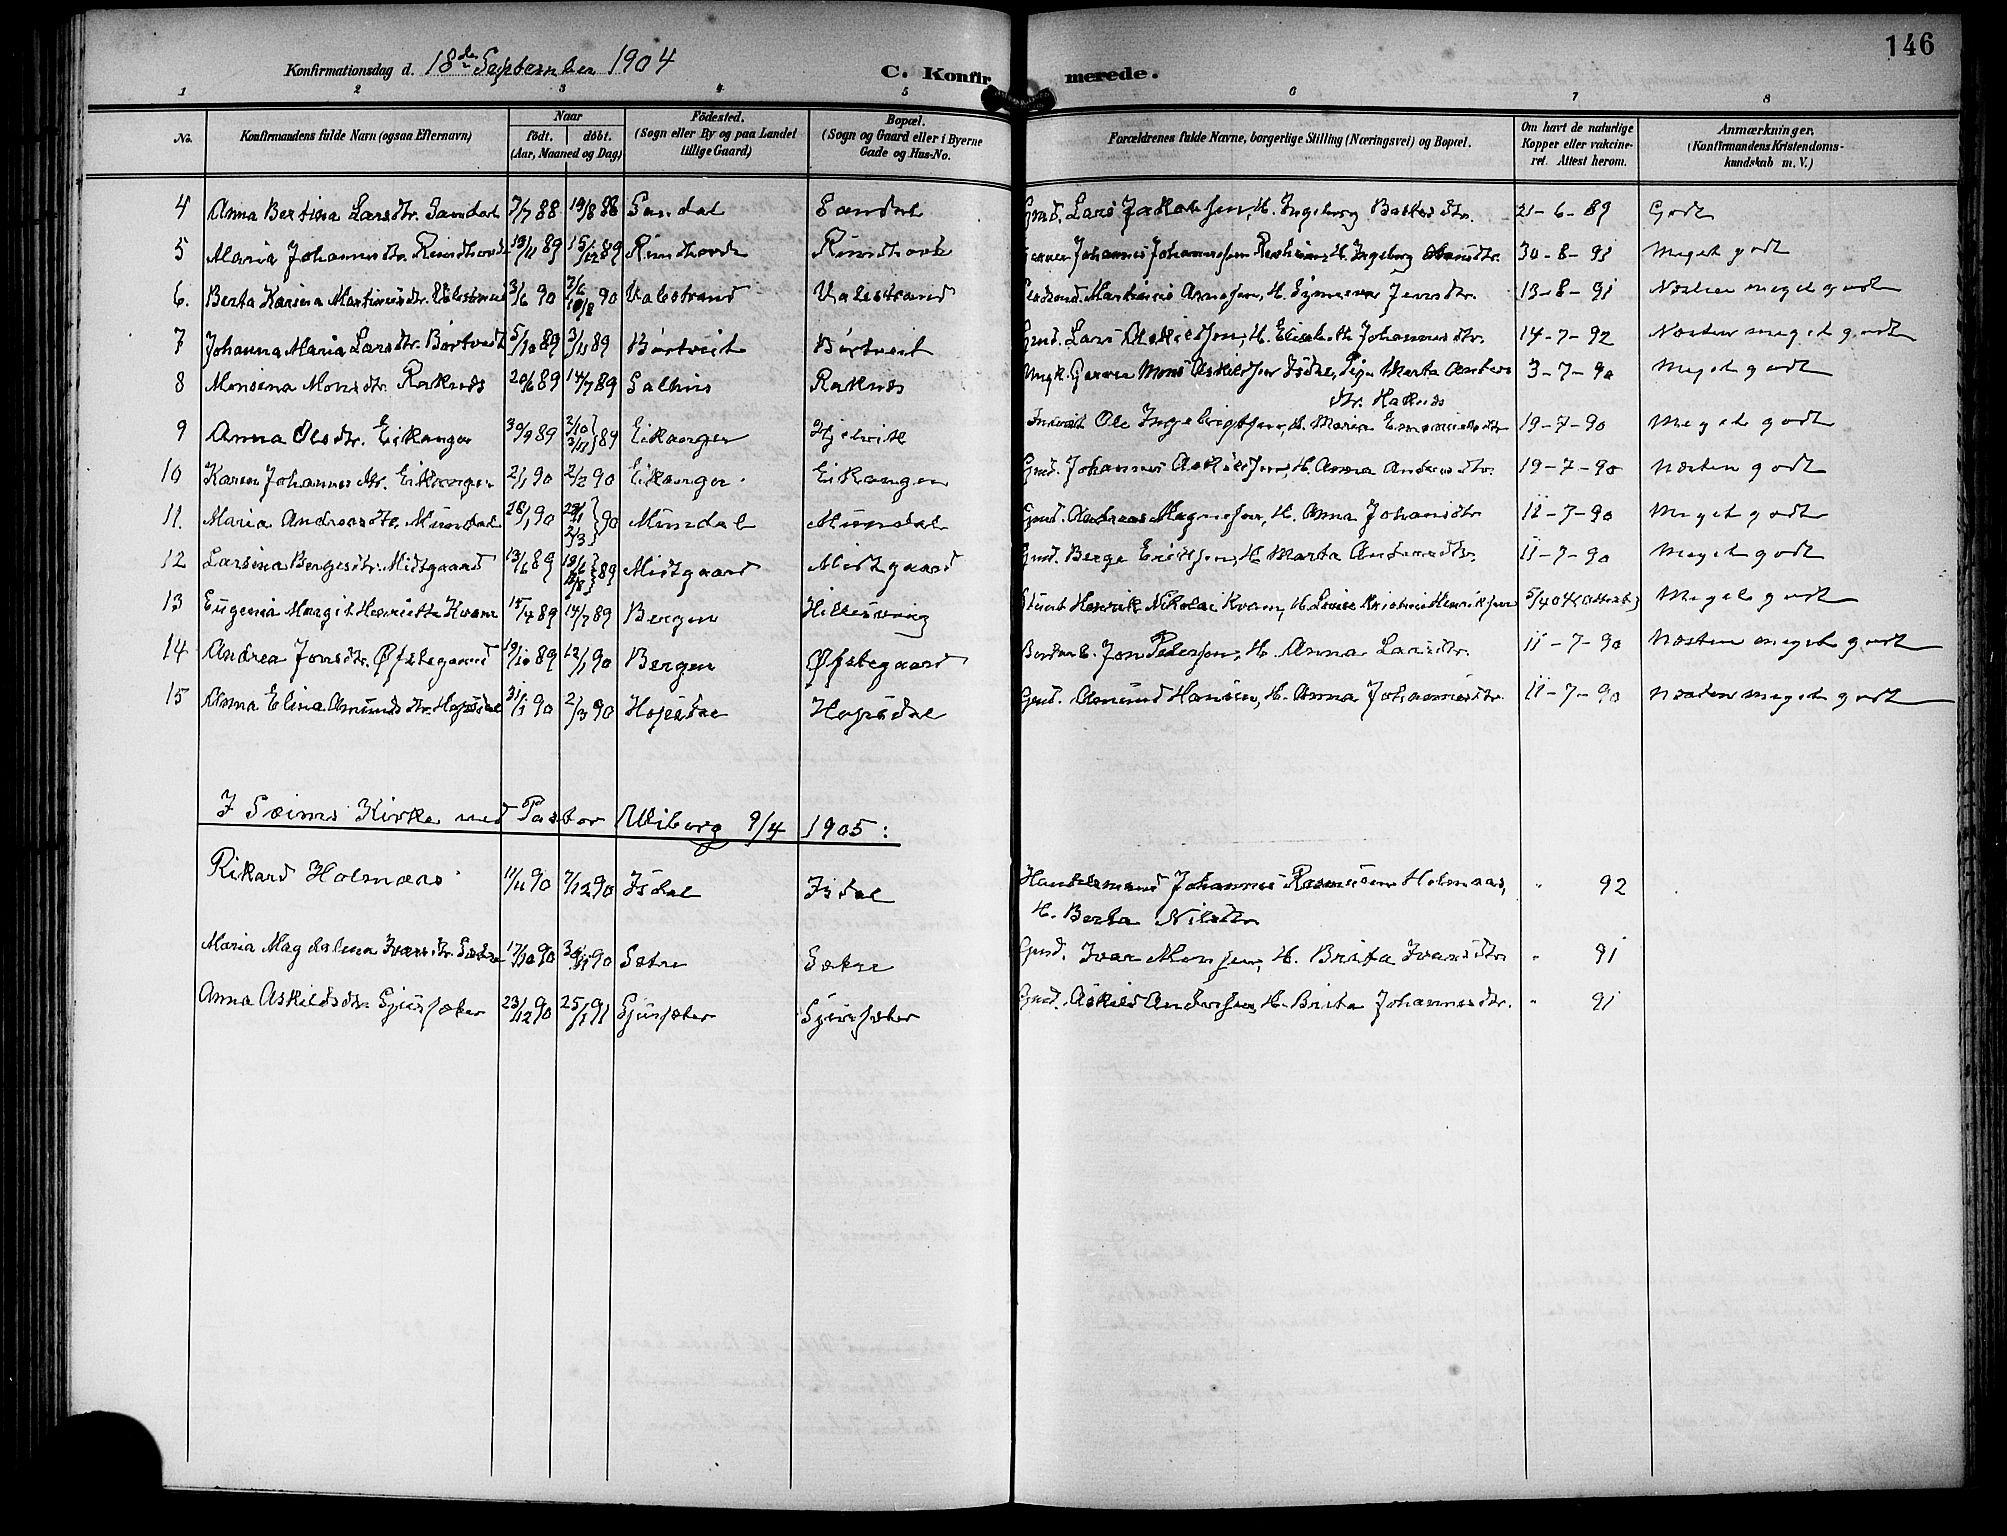 146
Konfirmationsdag d. 18de September 1904
C. Konfirmerede.
1 2 3 4 5 6 7 8
No. Konfirmandens fulde Navn (ogsaa Efternavn) Naar født. døbt. (Aar, Maaned og Dag) Fødested. (Sogn eller By og paa Landet tillige Gaard) Bopæl. (Sogn og Gaard eller i Byerne Gade og Hus-No. Forældrenes fulde Navne, borgerlige Stilling (Næringsvei) og Bopæl. Om havt de naturlige Kopper eller vakcineret. Attest herom. Anmærkninger. (Konfirmandens Kristendomskundskab m. V.)
4 Anna Bertina Larsdtr. Sandal 7/7 88 19/8 88 Sandal Sandal Gmd. Lars Jakobsen, H. Ingeborg 21-6-89 Godt
5 Maria Johannesdtr. 13/11 89 15/12 89 Johannes Johannessen H. Ingeborg 30-8-91 Meget godt
6. Berta Karina Martinusdtr. Valestrand 3/6 90 10/8 90 Valestrand Valestrand Martinus Arnesen, H. Synneva Jensdtr. 13-8-91 Næsten meget godt
7 Johanna Maria Larsdtr. Børtveit 5/10 89 3/11 89 Børtveit Børtveit Gmd. Lars H. Elisabeth Johannesdtr. 14-7-92 Næsten meget godt
8 Monsena Monsdtr. Raknes 20/6 89 14/7 89 Salhus Raknes Ungk. Garver Mons Askildsen Isdal, Pige Marta Anders 3-7-90 Meget godt
dtr. Raknes
9 Anna Olsdtr. Eikanger 30/9 89 2/10 3/11 } 89 Eikanger Hjelvik Ole Ingebrigtsen, H. Maria 19-7-90 Meget godt
10 Karen Johannesdtr. Eikanger 2/1 90 2/2 90 Eikanger Eikanger Gmd. Johannes Askildsen, H. Anna Andersdtr. 19-7-90 Næsten godt
11. Maria Andreasdtr. Mundal 28/1 90 29/1 2/3 } 90 Mundal Mundal Gmd. Andreas Magnesen, H. Anna Johansdtr 11-7-90 Meget godt
12 Larsina Bergesdtr. Midtgaard 13/6 89 } 89 Midtgaard Midtgaard Gmd. Berge H. Marta Andersdtr. 11-7-90 Meget godt
13 Eugenia Margit Henriette Kvam 15/4 89 14/7 89 Bergen Henrik Nikolai Kvam, H. Lovise Henriksen 5/4 04 (attest) Meget godt
14 Andrea Jonsdtr. Øfstegaard 19/10 89 12/1 90 Bergen Øfstegaard Jon Pedersen, H. Anna Larsdtr. 11-7-90 Næsten meget godt
15 Anna Elina Amundsdtr. Hopsdal 31/1 90 2/3 90 Hopsdal Hopsdal Gmd. Amund Hansen, H. Anna Johannesdtr. 11-7-90 Næsten meget godt
I Seims Kirke ved Pastor Wiborg 9/4 1905:
Rikard Holmaas 11/11 90 7/12 90 Isdal Isdal Handelsmand Johannes Rasmussen Holmaas, " 92
H. Berta Nilsdtr
Maria Magdalena Ivarsdtr. Sætre 17/10 90 30/11 90 Sætre Sætre Gmd. Ivar Monsen, H. Brita Ivarsdtr " 91
Anna Askildsdtr. Gjursæter 23/12 90 25/1 91 Gjursæter Gjursæter Gmd. Askild Andersen, H. Brita Johannesdtr. " 91